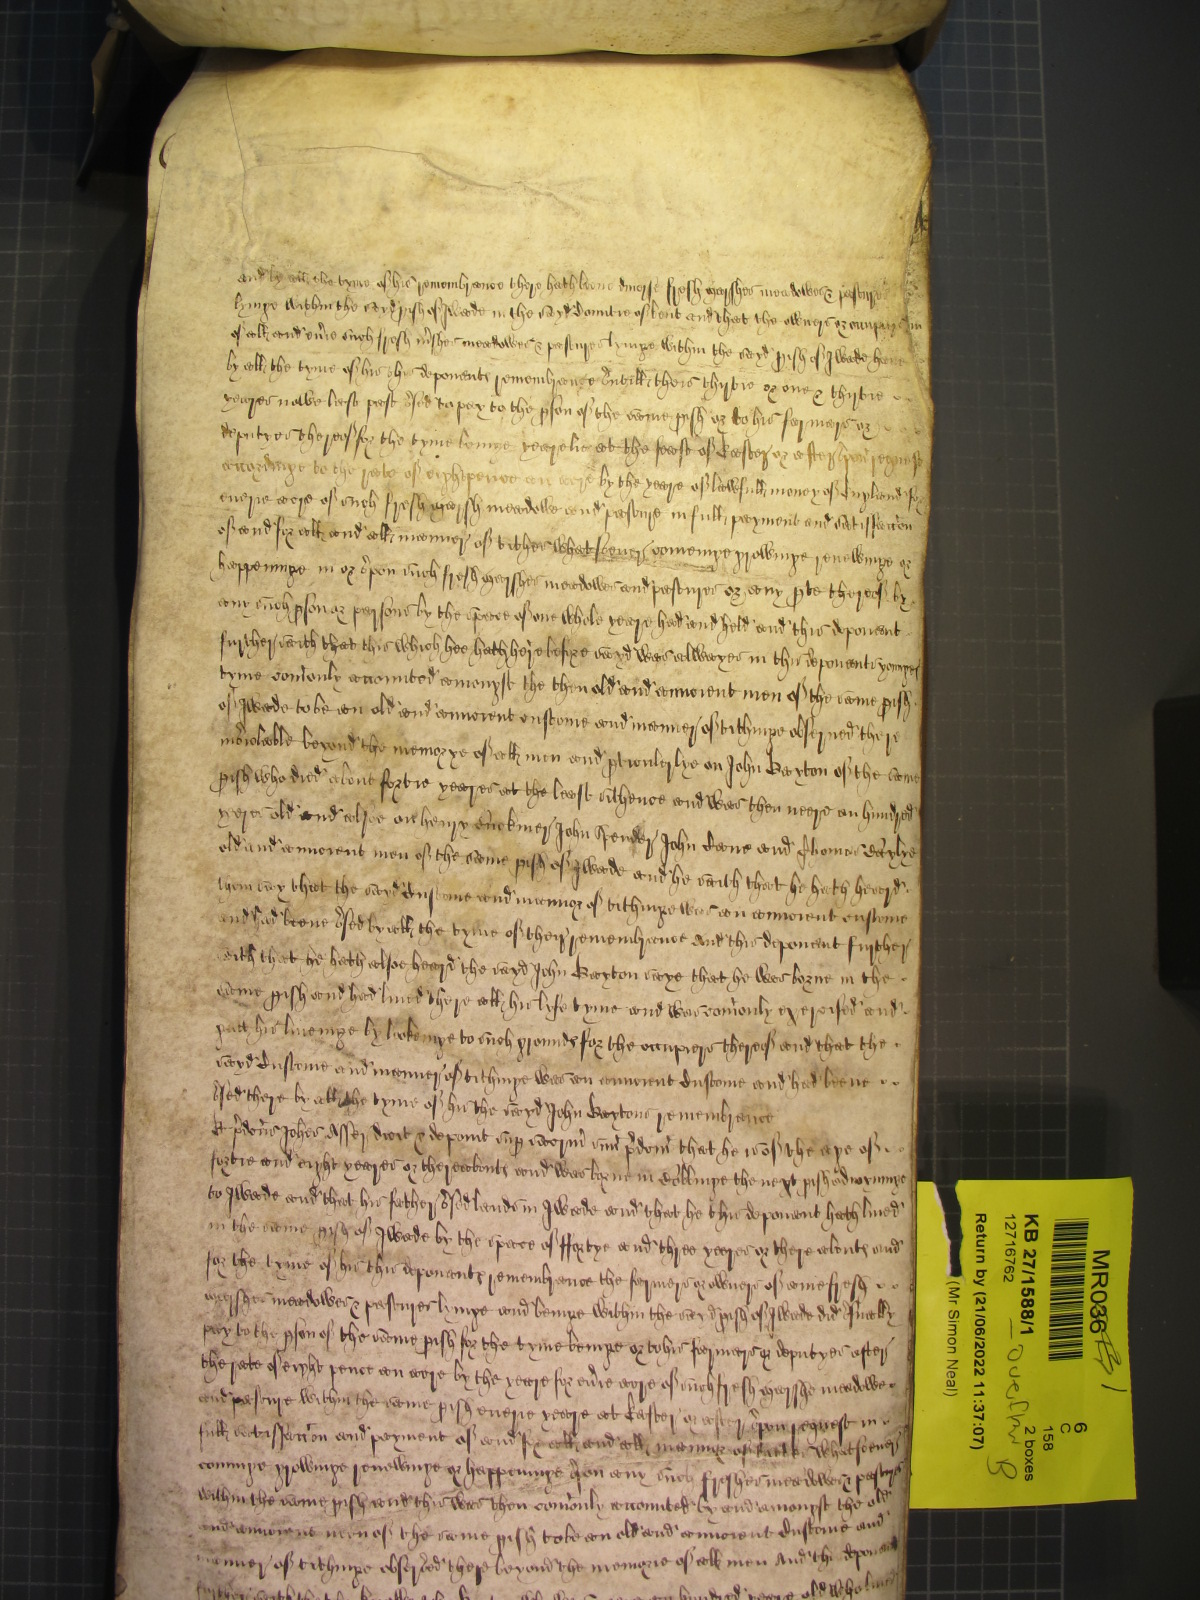 and by all the tyme of his remembrance there hath beene divers fresh marshes meadowes & pastures
lyinge within the sayd pish of Iwade in the sayd Countie of Kent and that the owners or occupiers
of all and evie such fresh mshes meadowes & pastures lyinge within the sayd pish of Iwade have
by all the tyme of his this deponents remembrance untill theis thirtie or one & thirtie
yeares nowe last past used to pay to the pson of the same pish or to his farmers or
deputyes thereof for the tyme beinge yearelie at the feast of Easter or after upon request
accordinge to the rate of eightpence an acre by the yeare of lawfull money of England for
everie acre of such fresh marsh meadowe and pasture in full payment and satisfaccon
of and for all and all manner of tithes whatsoever comeinge growinge renewinge or
happeninge in or upon such fresh marshes meadowes and pastures or any pte thereof by
any such pson or persons by the space of one whole yeare had and held and this deponent
further saith that this which hee hath here before sayd was alwayes in this deponents younger
tyme comonly accounted amongst the then old and auncient men of the same pish
of Iwade to be an old and auncient custome and manner of tithinge observed there
inviolable beyond the memorye of all men and pticulerlye on John Baxton of the same
pish who died about fortie yeares at the least sithence and was then neere an hundred
yeres old and alsoe on Henry John John and Thomas
old and auncient men of the same pish of Iwade and he saith that he hath heard
them say that the sayd Custome and manner of tithinge was an auncient custome
and had beene used by all the tyme of their remembrance And this deponent further
saith that he hath alsoe heard the sayd John Baxton saye that he was borne in the
same pish and had lived there all his lyfe tyme and was comonly exercised and
gatt his liveinge by lookeinge to such grounds for the occupiers thereof and that the
sayd Custome and manner of tithinge was an auncient Custome and had beene
used there by all the tyme of his the sayd John Baxtons remembrance
Et pdcus Johes Asser dicit & deponit sup sacrm suu pdcm that he is of the age of
fortie and eight yeares or thereabouts and was borne in the next pish adioyninge
to Iwade and that his father used lands in Iwade and that he this deponent hath lived
in the same pish of Iwade by the space of ffortye and three yeares or there abouts and
for the tyme of his this deponents remembrance the farmers or owners of anie fresh
marshes meadowes & pastures lyinge and beinge within the sayd pish of Iwade did usually
pay to the pson of the same pish for the tyme beinge or to his farmers or deputyes after
the rate of eight pence an acre by the yeare for evie acre of such fresh marshe meadowe
and pasture within the same pish everie yeare at Easter or after upon request in
full satisfaccon and payment of and for all and all manner of tithes whatsoever
cominge growinge renewinge or happeninge upon any such fresh meadowes & pastures
within the same pish and this was then comonly accounted by and amongst the old
and auncient men of the same pish to be an old and auncient Custome and
manner of tithinge observed there beyond the memorie of all men And this deponent
yeares old who lived
MR036
6
C
158
2 boxes
KB 27/1588/1
12716762
Return by (21/06/2022 11:37:07)
(Mr Simon Neal)